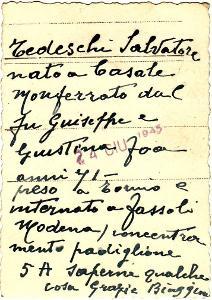 Tedeschi Salvatore
nato a Casale
Monferrato dal
fu Guiseppe e
Giustina Foa
anni 71-
preso a Torino e
internato a Fassoli
Modena/concentra
mento padiglione
5A saperne qualche
cosa Grazie
4 GIU 1945